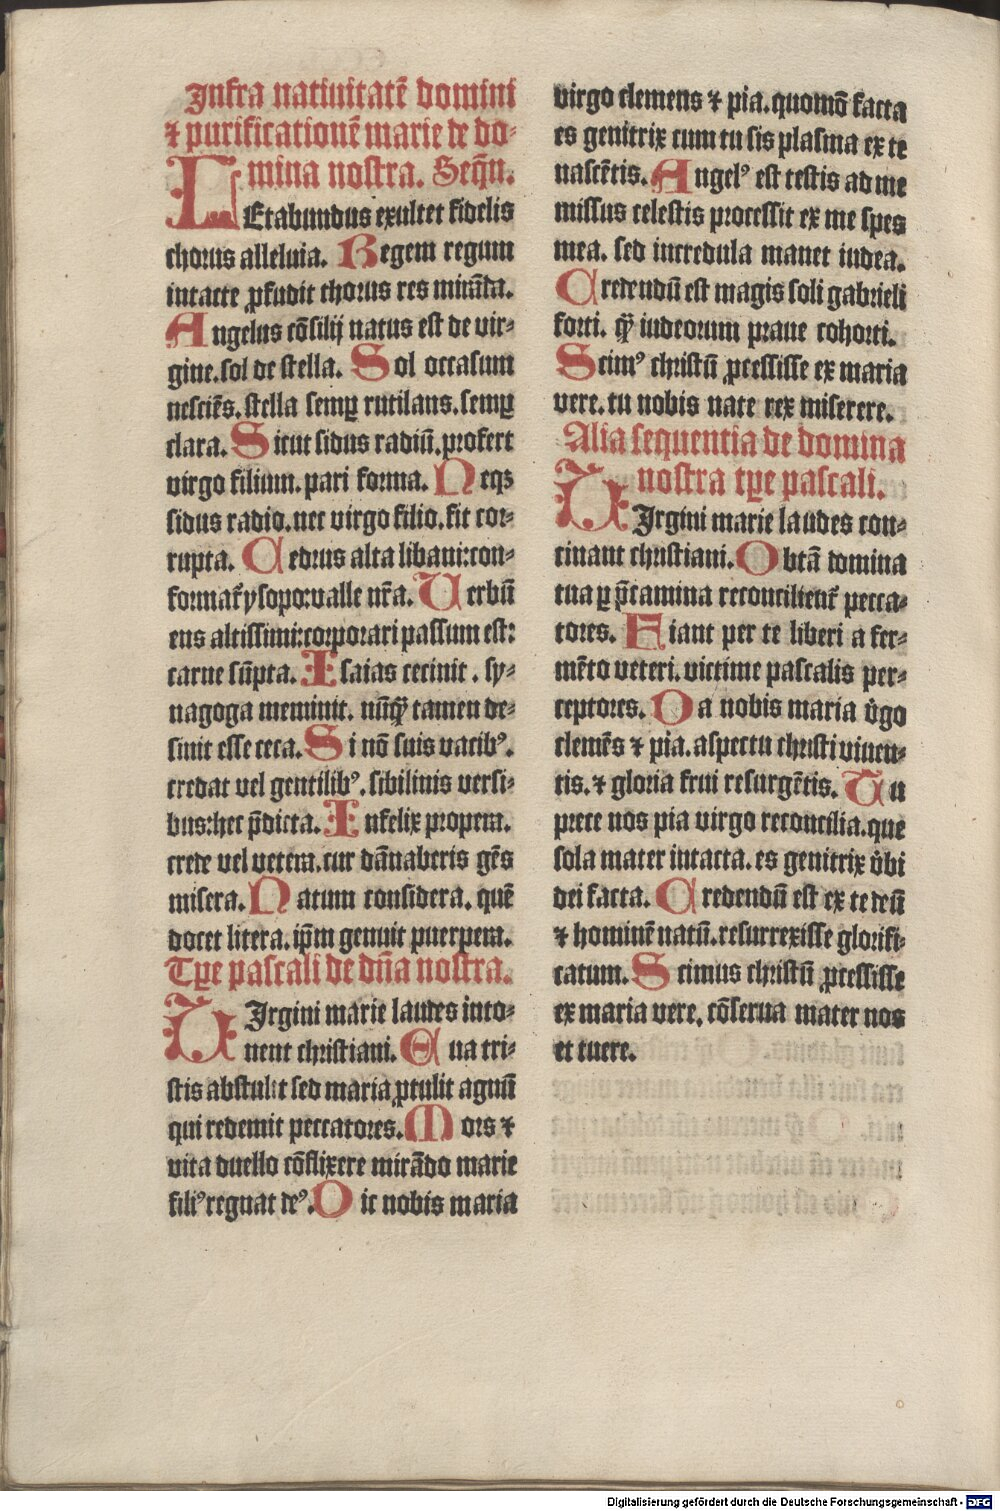 Infra natiuitatē domini
⁊ purificationē marie de do-
mina nostra. Seqn̄.
LEtabundus exultet fidelis
chorus alleluia. Regem regum
intacte ꝓfudit thorus res mirāda.
Angelus cōsilij natus est de vir-
gine. sol de stella. Sol occasum
nesciēs. stella semꝑ rutilans. semꝑ
clara. Sicut sidus radiū. profert
virgo filium. pari forma. Neqꝫ
sidus radio. nec virgo filio. fit cor-
rupta. Cedrus alta libani: con-
format᷑ ysopo: valle nr̄a. Verbū
ens altissimi: corporari passum est:
carne sūpta. Isaias cecinit. sy-
nagoga meminit. nūqꝫ tamen de-
sinit esse ceca. Si nō suis vatibꝰ.
credat vel gentilibꝰ. sibilinis versi-
bus: hec p̄dicta. Infelix propera.
crede vel vetera. cur dānaberis gēs
misera. Natum considera. quē
docet litera. ip̄m genuit puerpera.
Tꝑe pascali de dn̄a nostra.
VIrgini marie laudes into-
nent christiani. Eua tri-
stis abstulit sed maria ꝓtulit agnū
qui redemit peccatores. Mors ⁊
vita duello cōflixere mirādo marie
filiꝰ regnat deꝰ. Dic nobis maria
virgo clemens ⁊ pia. quomō facta
es genitrix cum tu sis plasma ex te
nascētis. Angelꝰ est testis ad me
missus celestis processit ex me spes
mea. sed incredula manet iudea.
Credendū est magis soli gabrieli
forti. qꝫ iudeorum praue cohorti.
Scimꝰ christū ꝓcessisse ex maria
vere. tu nobis nate rex miserere.
Alia sequentia de domina
nostra tꝑe pascali.
VIrgini marie laudes con-
cinant christiani. O btā domina
tua ꝑ p̄camina reconcilient᷑ pecca-
tores. Fiant per te liberi a fer-
mēto veteri. victime pascalis per-
ceptores. Da nobis maria v̓go
clemēs ⁊ pia. aspectu christi viuen-
tis. ⁊ gloria frui resurgētis. Tu
prece nos pia virgo reconcilia. que
sola mater intacta. es genitrix v̓bi
dei facta. Credendū est ex te deū
⁊ hominē natū. resurrexisse glorifi-
catum. Scimus christū ꝓcessisse
ex maria vere. cōserua mater nos
et tuere.
Digitalisierung gefördert durch die Deutsche Forschungsgemeinschaft - DFG